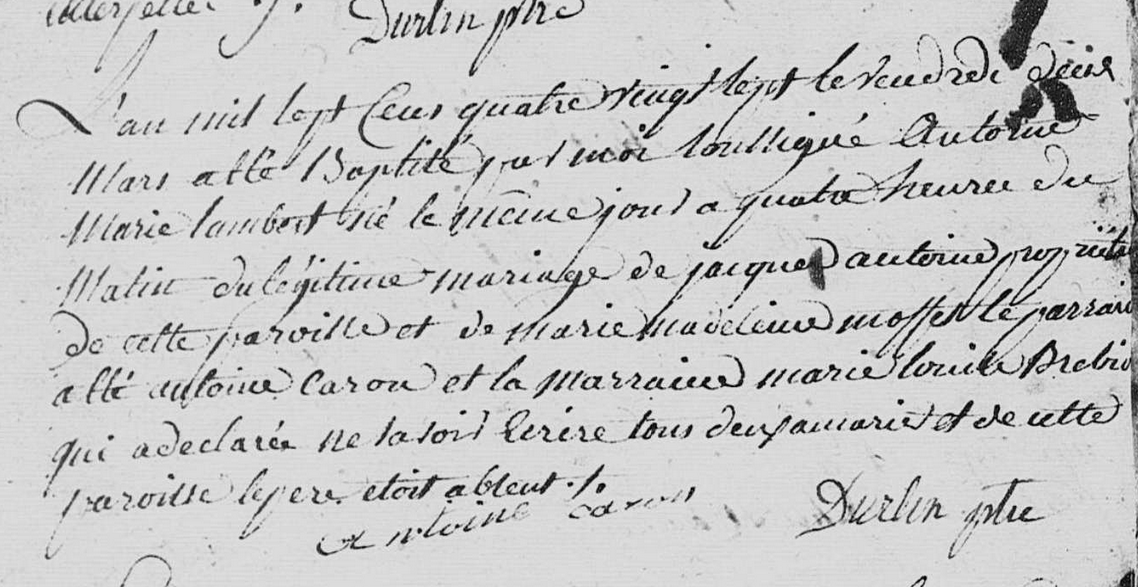 interpellé ./.
Durlin ptre
L'an mil sept Cens quatre vingt sept le vendredi deux
Mars a été Baptisé par moi soussigné Antoine
Marie lambert né le même jour a quatre heures du
Matin du légitime mariage de jacques antoine propriétai
de cette paroisse et de marie madeleine le parrain
a été antoine Caron et la marraine marie louise
qui a declarée ne savoir Ecrire tous deux a marier et de cette
paroisse le pere etoit absent ./.
antoine caron
Durlin ptre